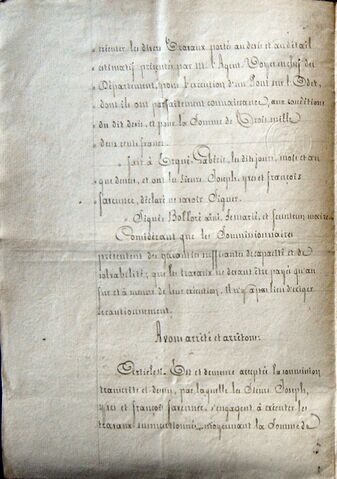 « xécuter les divers Travaux porté au devis et au détail
« estimatif présenté par M. l'Agent Voyer en chef du
« Département, pour l'exécution d'un Pont sur l'Odet,
« dont ils ont parfaitement connaissance, aux conditions
« du dit devis, et pour la Somme de Trois mille
« deux cents francs.
« fait à Ergué-Gabéric, les dit jour, mois et an
que dessus, et ont les Sieurs Joseph, Yves et françois
farennec, déclaré ne savoir Signer.
« Signés Bolloré aîné, Demarié, et maire.
Considérant que les Commissionnaires
présentent des garanties suffisantes de capacité et de
solvabilité; que les travaux ne devant être payés qu'au
fur et à mesure de leur exécution, Il n'y a pas lieu d'exiger
de cautionnement.
Avons arrêté et arrêtons:
Article 1er. Est et demeure acceptée la soumission
transcrite ci dessus, par laquelle les Sieurs Joseph,
Yves et françois farennec, s'engagent à exécuter les
travaux susmentionnés, moyennant la Somme de